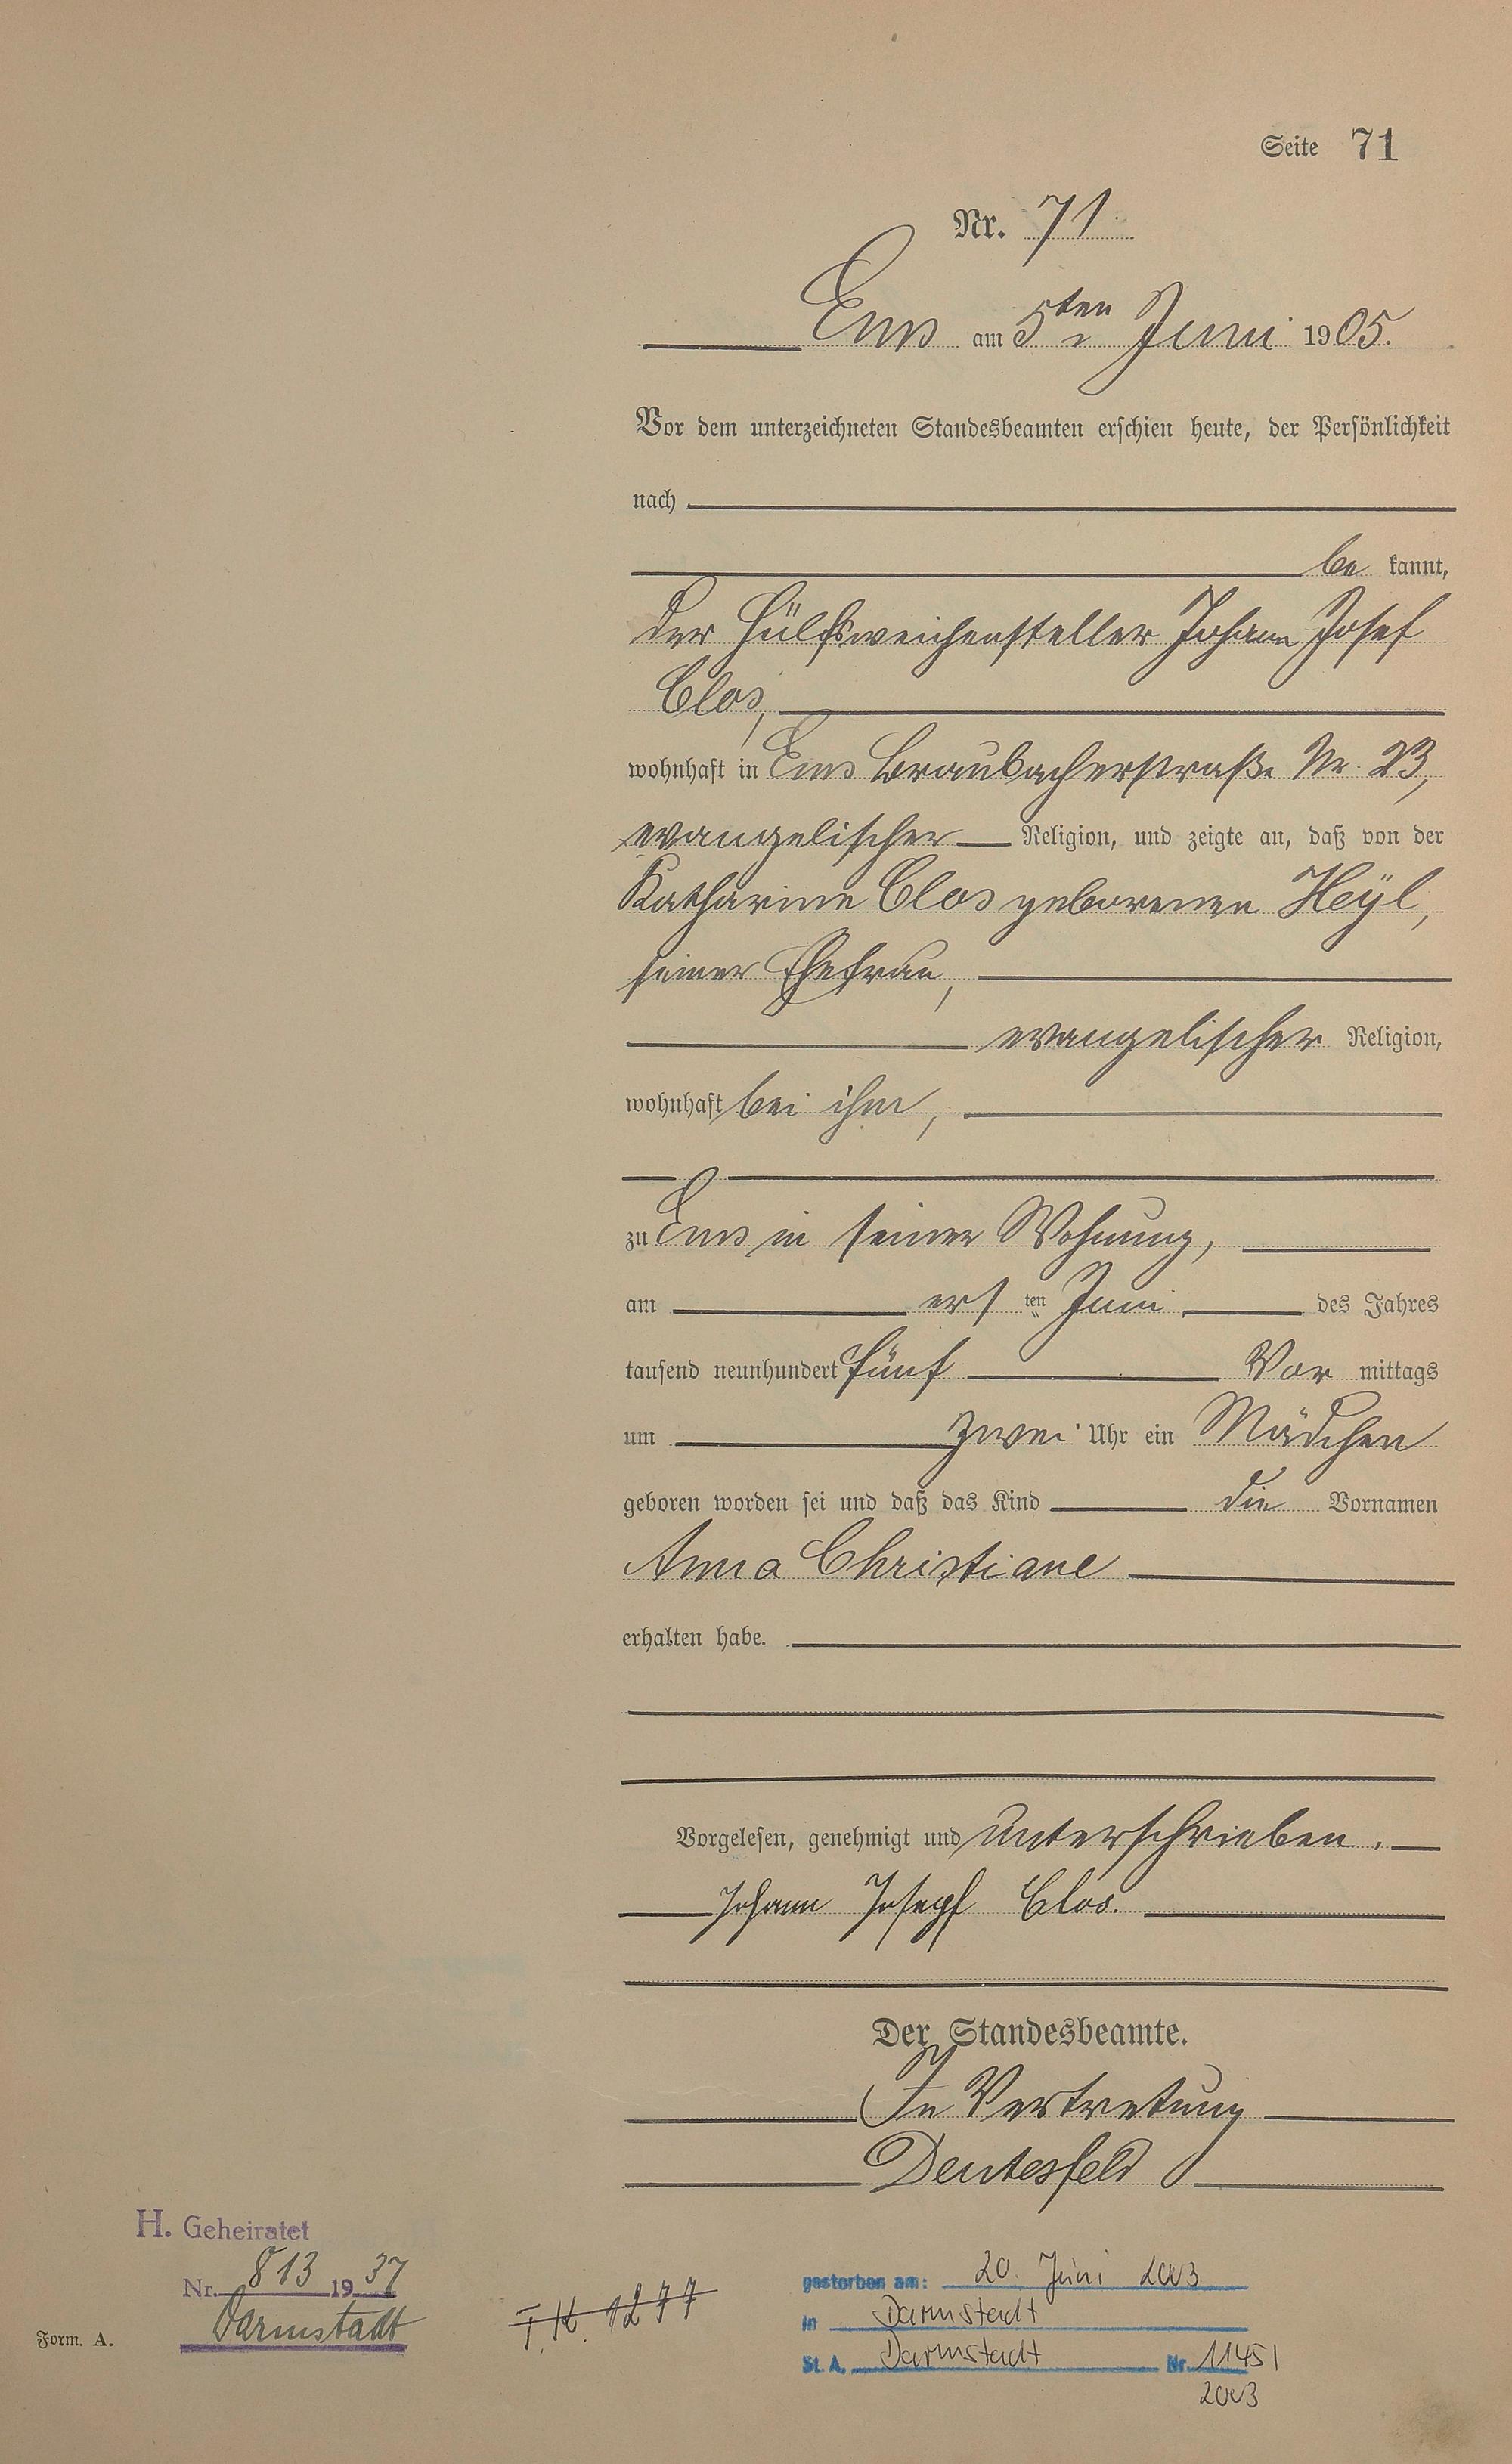 Seite 71
Nr. 71
Ems am 5ten Juni 1905.
Vor dem unterzeichneten Standesbeamten erschien heute, der Persönlichkeit
nach
be kannt,
der Hülfsweichensteller Johann Josef
Clos,
wohnhaft in Ems Braubacherstraße Nr. 23,
evangelischer Religion, und zeigte an, daß von der
Katharine Clos geborenen Heÿl,
seiner Ehefrau,
evangelischer Religion,
wohnhaft bei ihm,
zu Ems in seiner Wohnung,
am ers ten Juni des Jahres
tausend neunhundert fünf Vor mittags
um zwei Uhr ein Mädchen
geboren worden sei und daß das Kind die Vornamen
Anna Christiane
erhalten habe.
Vorgelesen, genehmigt und unterschrieben.
Johann Josepf Clos.
Der Standesbeamte.
In Vertretung
Dentesfeld
H. Geheiratet
Nr. 813 1937
Darmstadt
Form. A.
T. K. 1277
gestorben am: 20. Juni 2003
in Darmstadt
St. A. Darmstadt Nr. 1145/
2003